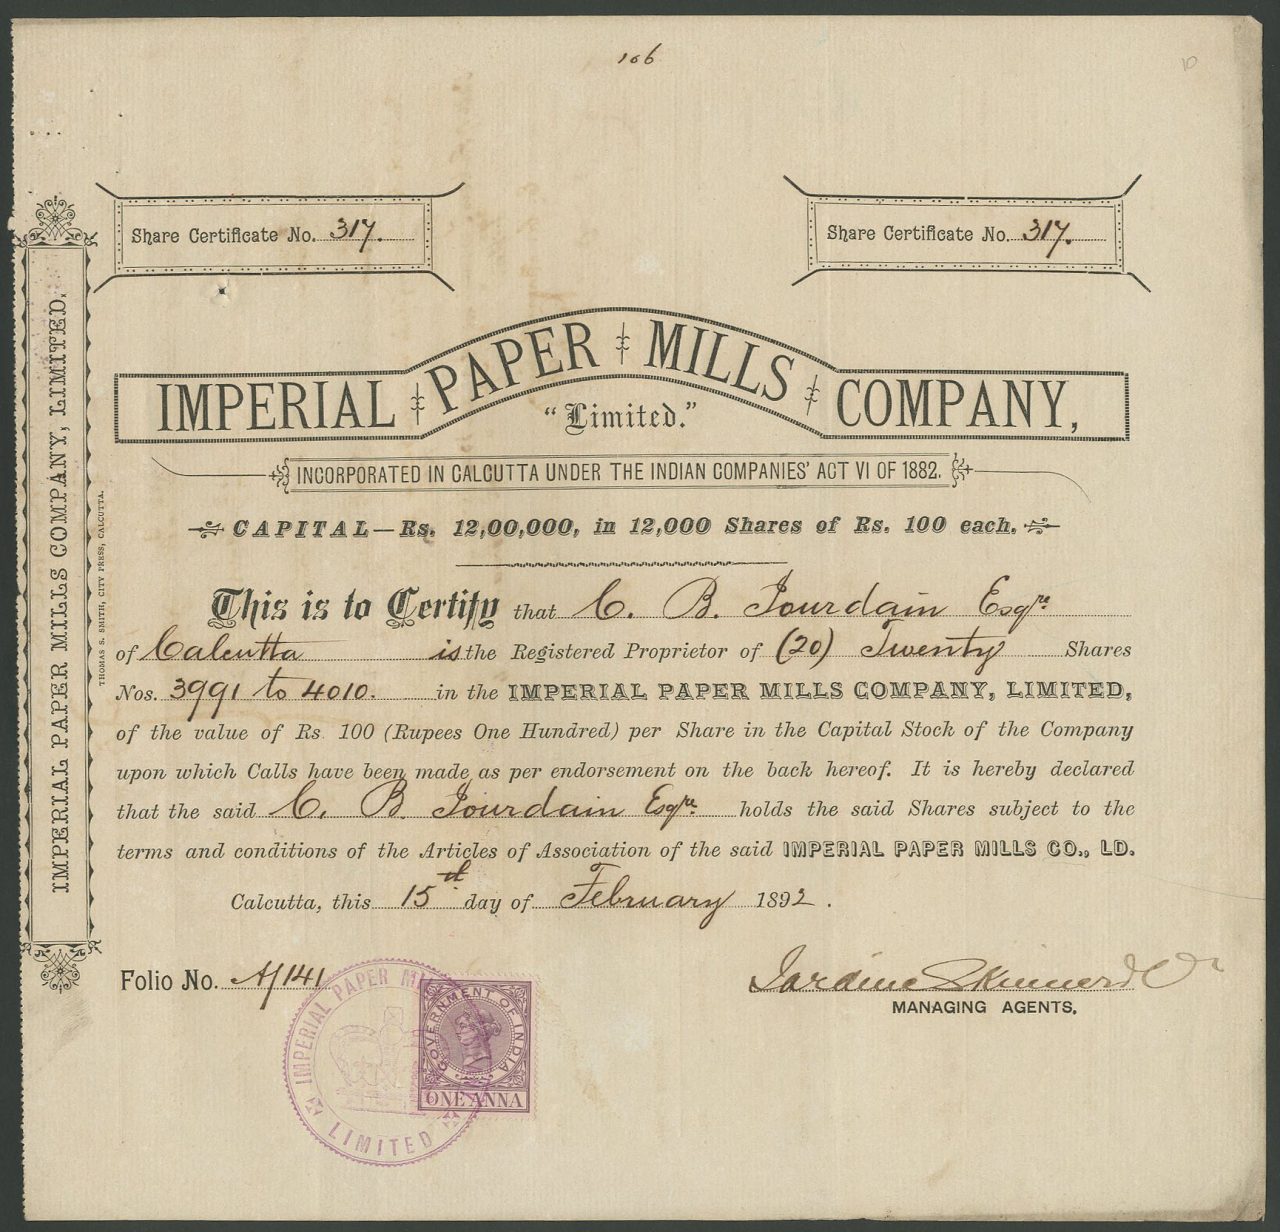 106
Share Certificate No. 317.
Share Certificate No. 317.
IMPERIAL PAPER MILLS COMPANY,
"Limited."
INCORPORATED IN CALCUTTA UNDER THE INDIAN COMPANIES' ACT VI OF 1882.
CAPITAL—Rs. 12,00,000, in 12,000 Shares of Rs. 100 each.
This is to Certify that C. B. Jourdain Esqre
of Calcutta is the Registered Proprietor of (20) Twenty Shares
Nos. 3991 to 4010. in the IMPERIAL PAPER MILLS COMPANY, LIMITED,
of the value of Rs. 100 (Rupees One Hundred) per Share in the Capital Stock of the Company
upon which Calls have been made as per endorsement on the back hereof. It is hereby declared
that the said C. B. Jourdain Esqre holds the said Shares subject to the
terms and conditions of the Articles of Association of the said IMPERIAL PAPER MILLS CO., LD.
Calcutta, this 15th day of February 1892.
Folio No. A/141
Jardine Skinner & Co
MANAGING AGENTS.
IMPERIAL PAPER MI
LIMITED
GOVERNMENT OF INDIA
ONE ANNA
IMPERIAL PAPER MILLS COMPANY, LIMITED.
THOMAS S. SMITH, CITY PRESS, CALCUTTA.